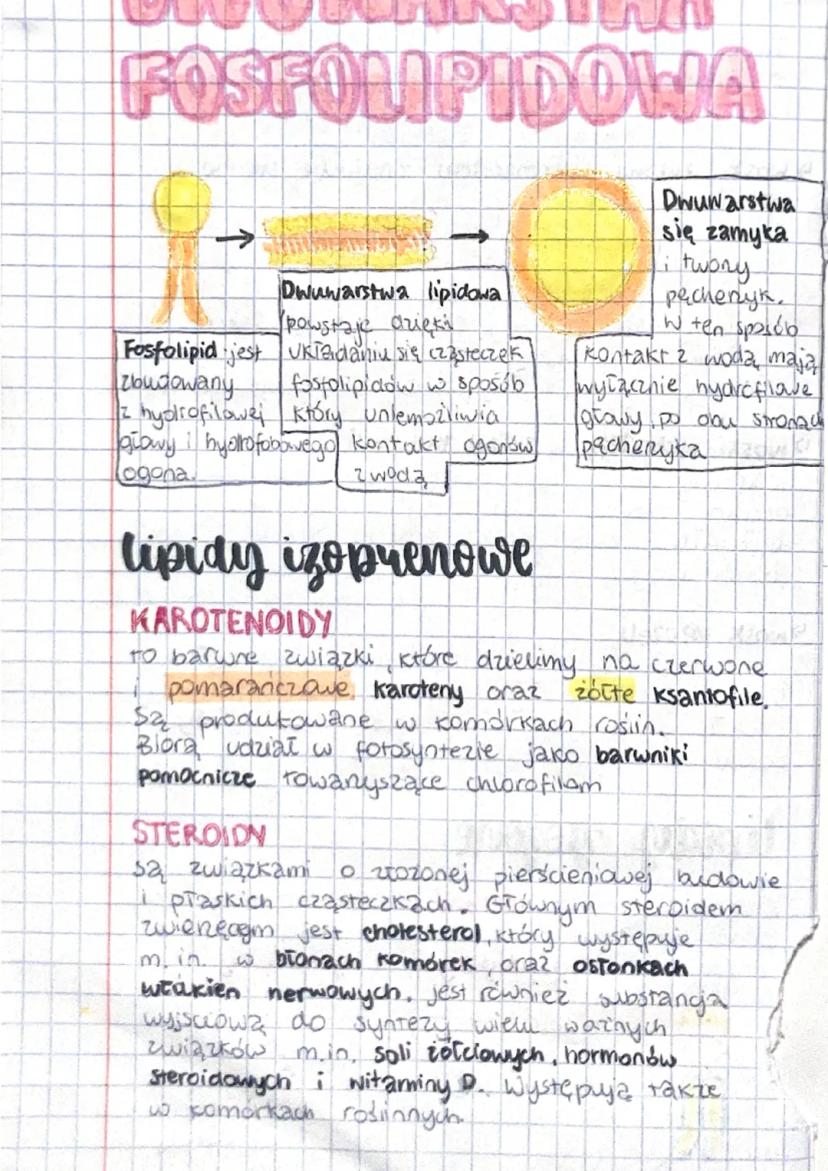 DWUWARSTWA
FOSFOLIPIDOWA
Fosfolipid jest
zbudowany
z hydrofilowej
głowy i hydrofobowego
ogona.
Dwuwarstwa lipidowa
powstaje dzięki
układaniu się cząsteczek
fosfolipidów w sposób
który uniemożliwia
kontakt ogonów
z wodą
Dwuwarstwa
się zamyka
i tworzy
pęcherzyk.
W ten sposób
kontakt z wodą mają
wyłącznie hydrofilowe
głowy po obu stronach
pęcherzyka
lipidy izoprenowe
KAROTENOIDY
to barwne związki, które dzielimy na czerwone
i pomarańczowe karoteny oraz żółte ksantofile.
Są produkowane w komórkach roślin.
Biorą udział w fotosyntezie jako barwniki
pomocnicze towarzyszące chlorofilom
STEROIDY
są związkami o złożonej pierścieniowej budowie
i płaskich cząsteczkach. Głównym steroidem
zwierzęcym jest cholesterol, który występuje
m.in. w błonach komórek, oraz osłonkach
włókien nerwowych. jest również substancją
wyjściową do syntezy wielu ważnych
związków m.in. soli żółciowych, hormonów
steroidowych i witaminy D. Występują także
w komórkach roślinnych.